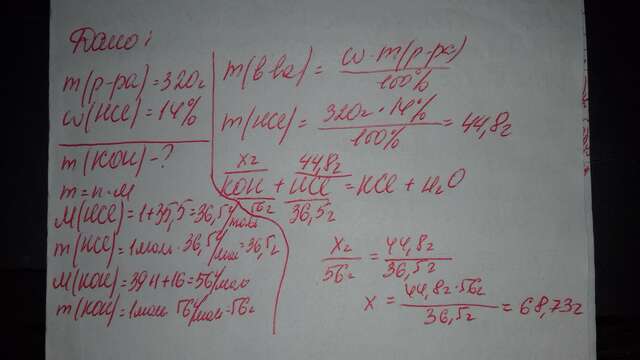 Дано:
m(р-ра)=320г
ω(HCl)=14%
m(KOH)-?
m=n·M
M(HCl)=1+35,5=36,5г/моль
m(HCl)=1моль·36,5г/моль=36,5г
M(KOH)=39+1+16=56г/моль
m(KOH)=1моль·56г/моль=56г
m(в-ва)=ω·m(р-ра)/100%
m(HCl)=320г·14%/100%=44,8г
xг 44,8г
KOH+HCl=KCl+H2O
56г 36,5г
xг/56г=44,8г/36,5г
x=44,8г·56г/36,5г=68,73г